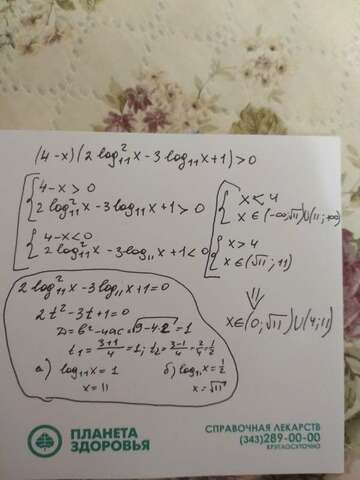 (4-x)(2log²₁₁x-3log₁₁x+1)>0
4-x>0
2log²₁₁x-3log₁₁x+1>0
4-x<0
2log²₁₁x-3log₁₁x+1<0
x<4
x∈(-∞;√11)∪(11;+∞)
x>4
x∈(√11;11)
⇓
x∈(0;√11)∪(4;11)
2log²₁₁x-3log₁₁x+1=0
2t²-3t+1=0
D=b²-4ac=√9-4·2=1
t₁=3+1/4=1; t₂=3-1/4=2/4=1/2
а) log₁₁x=1
x=11
б) log₁₁x=1/2
x=√11
ПЛАНЕТА
ЗДОРОВЬЯ
СПРАВОЧНАЯ ЛЕКАРСТВ
(343)289-00-00
КРУГЛОСУТОЧНО